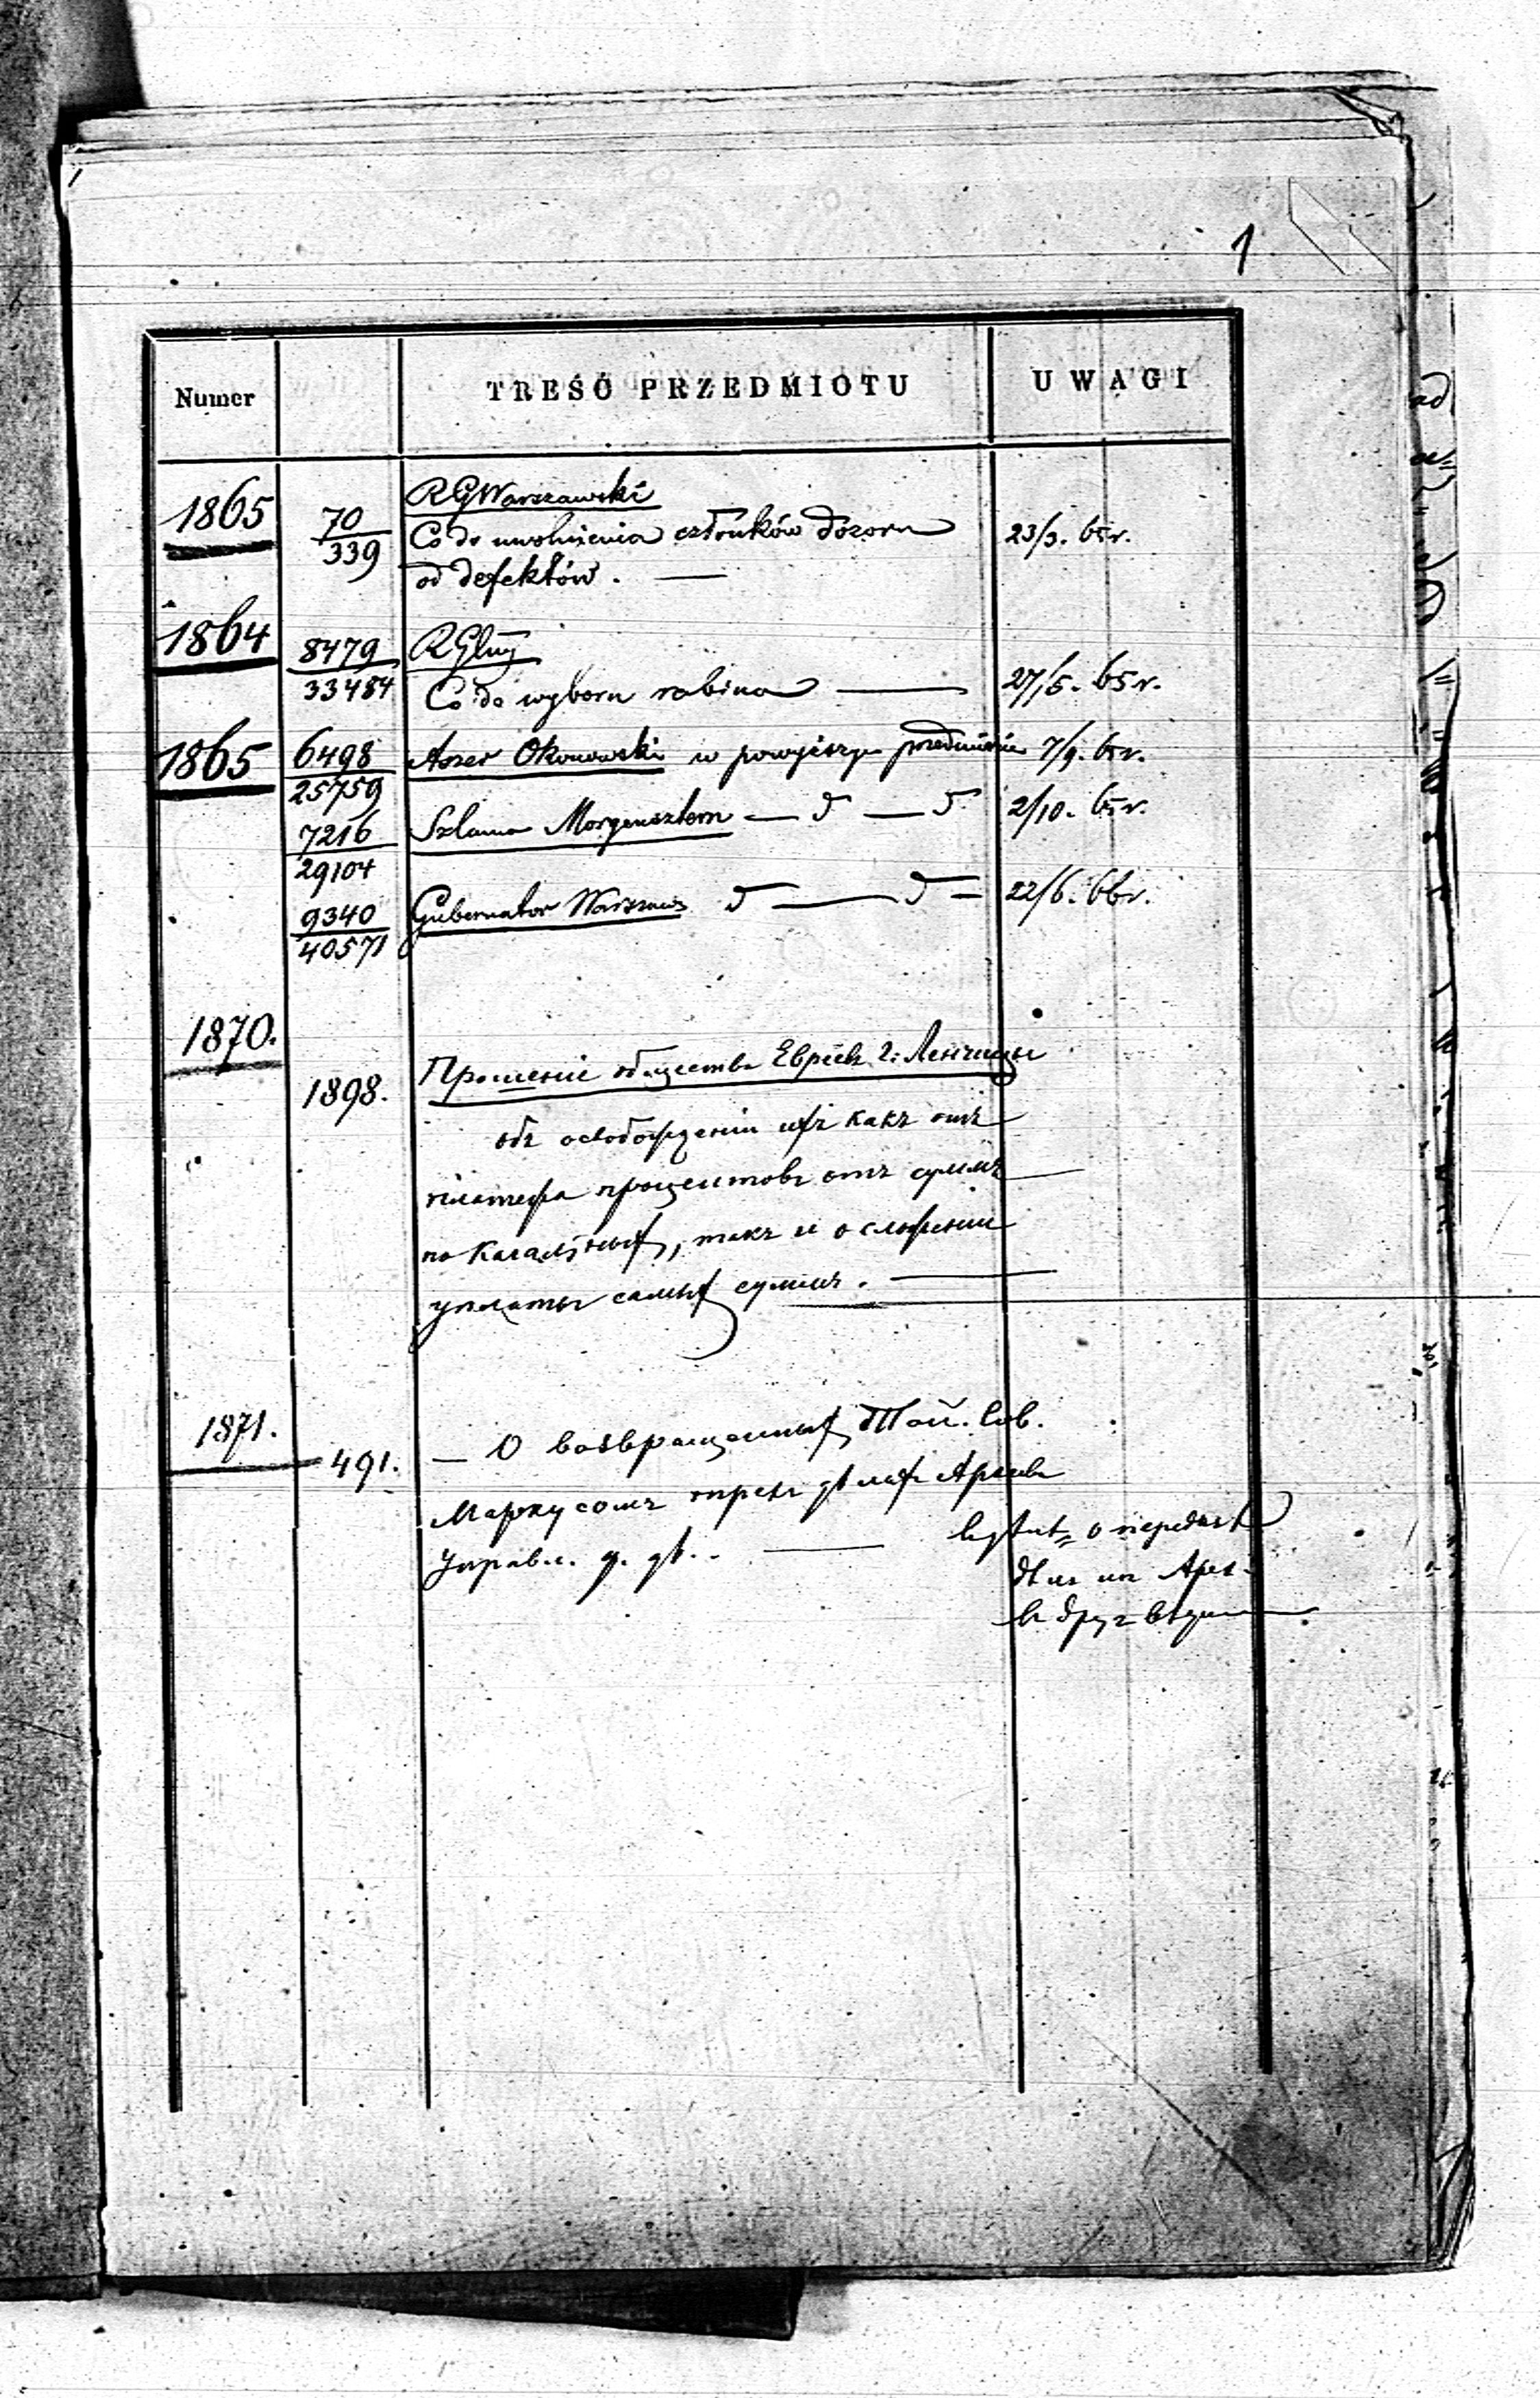 1
Numer TREŚĆ PRZEDMIOTU UWAGI
1865 70/339 RGWarszawski
Co do uwolnienia członków dozoru 23/3. 65 r.
od defektów. —
1864 8479/33484 RGlny
Co do wyboru rabina — 27/5. 65 r.
1865 6498/25759 Aszer Okonowski w powyższym przedmiocie 7/9. 65 r.
7216/29104 Szlama Morgensztern — d — d 2/10. 65 r.
9340/40571 Gubernator Warszaws d — d = 22/6. 66 r.
1870.
1898. Прошеніе общества Евреевъ г: Ленчицы
объ освобожденіи ихъ какъ отъ
платежа процентовъ отъ суммъ
по Кагальныхъ, такъ и о сложеніи
уплаты самыхъ суммъ. —
1871.
491. — О возвращенныхъ Тай. Сов.
Маркусомъ трехъ дѣлахъ Архива
Управл. д. дѣ.. —
о передачѣ
дѣлъ изъ Арх.
въ друг вѣдом